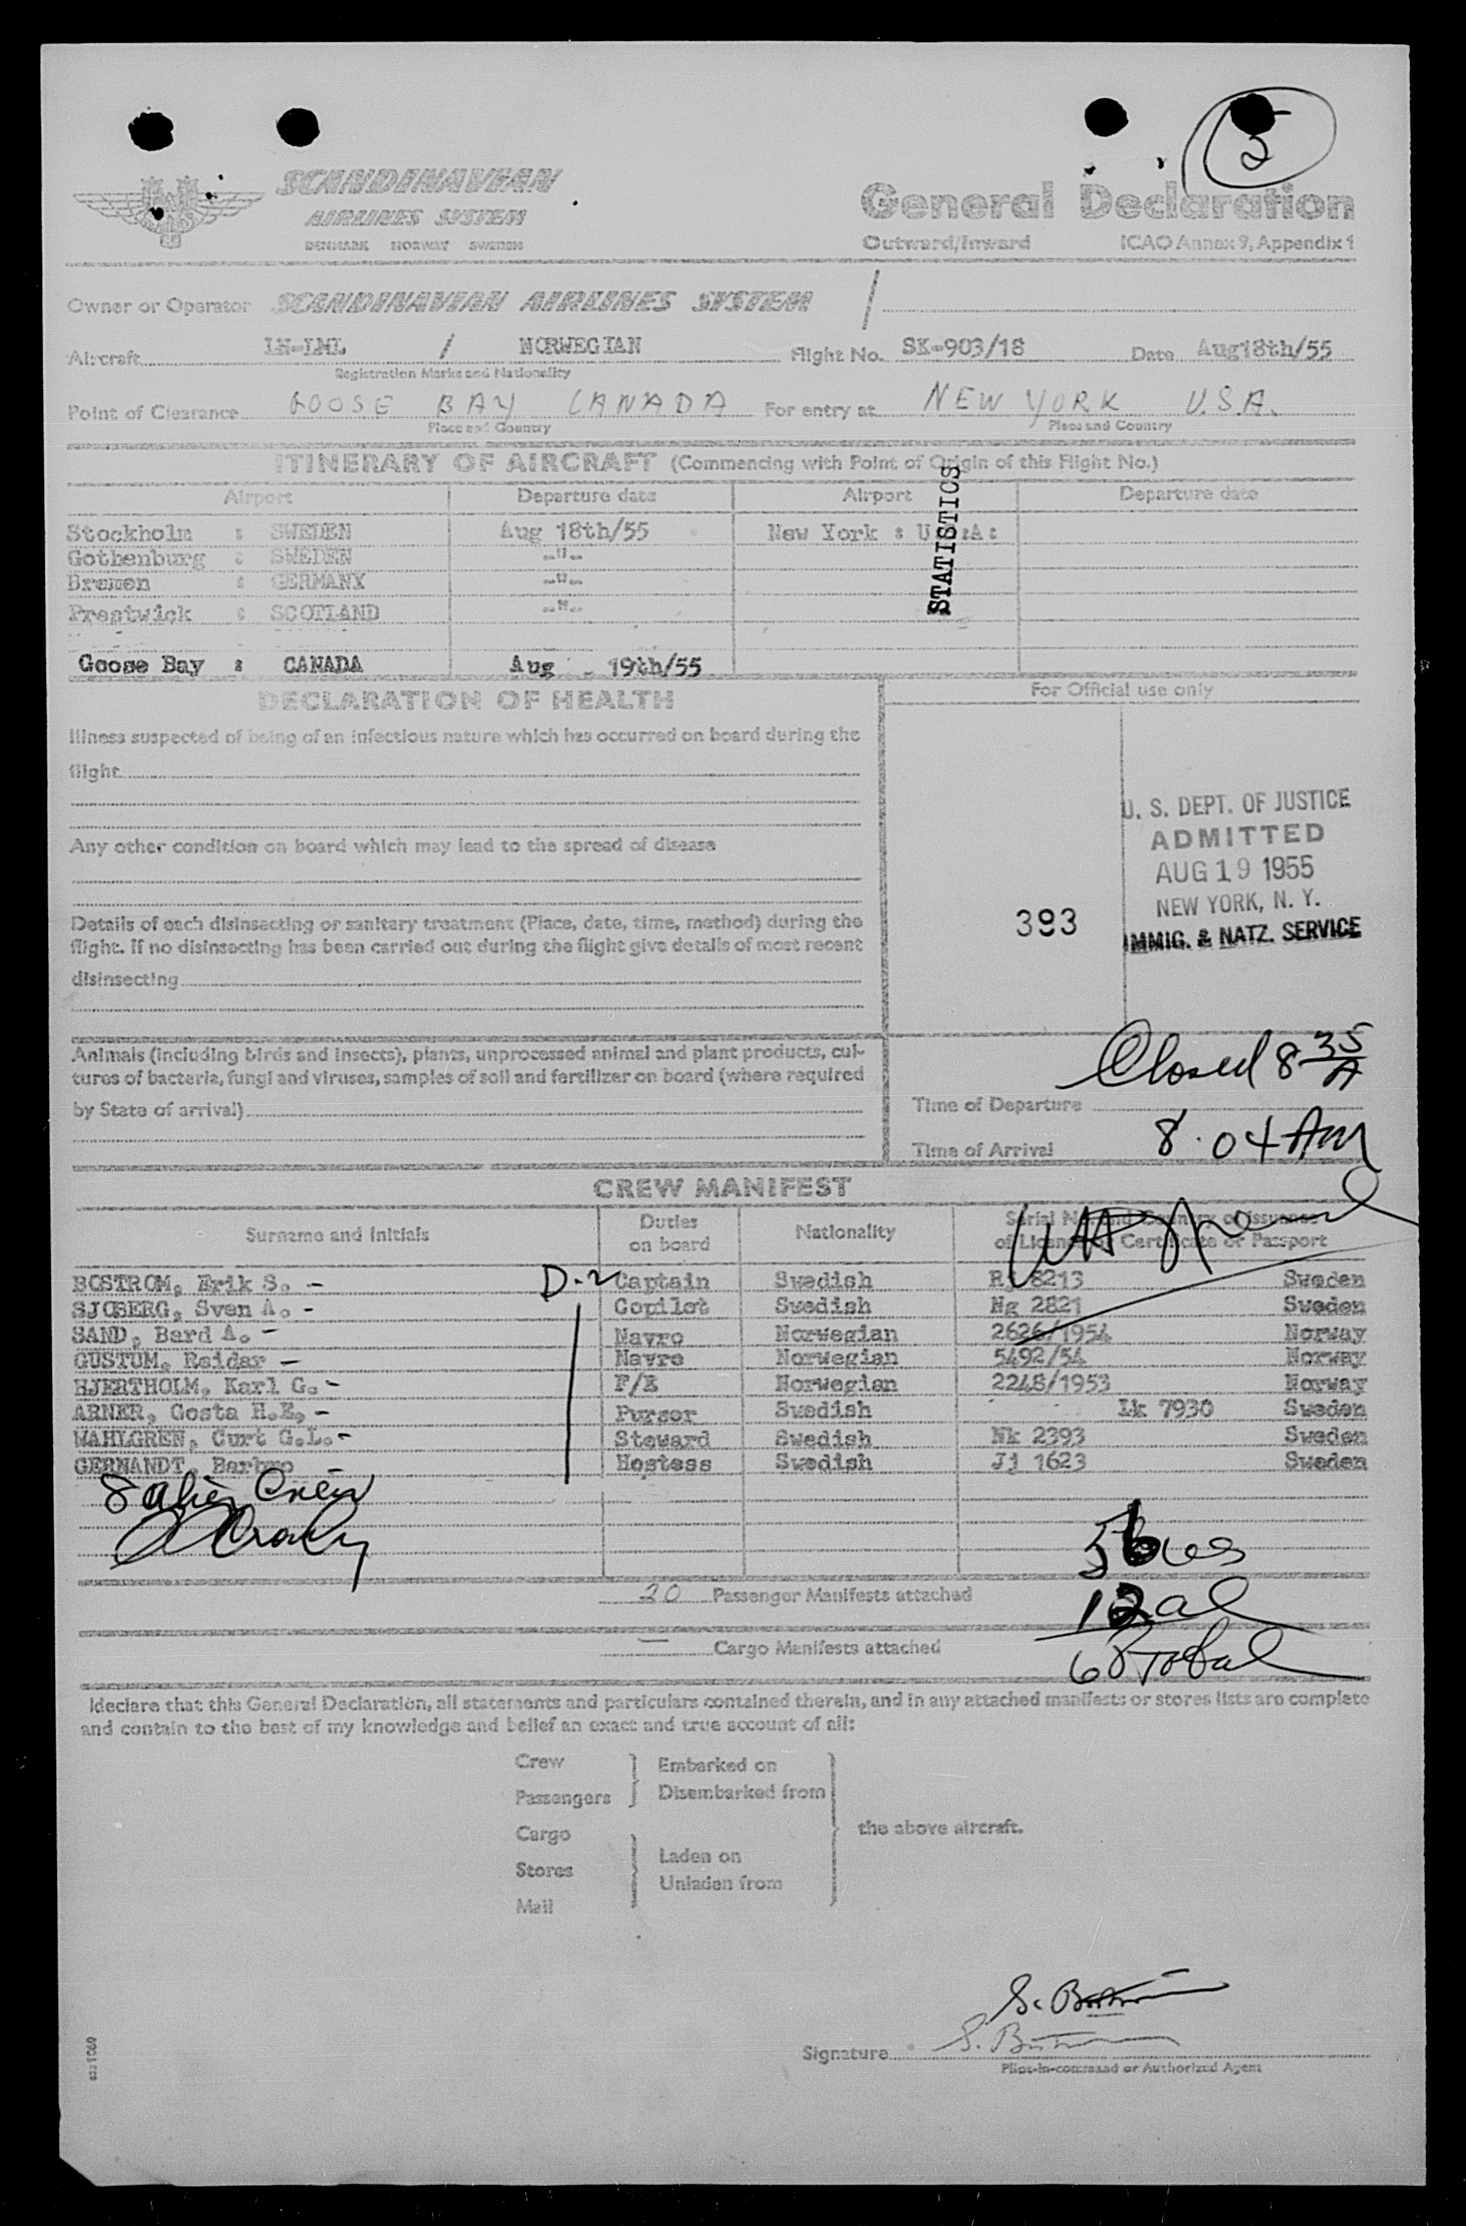 5
SCANDINAVIAN
AIRLINES SYSTEM
DENMARK NORWAY SWEDEN
General Declaration
Outward/Inward ICAO Annex 9, Appendix 1
Owner or Operator SCANDINAVIAN AIRLINES SYSTEM /
Aircraft LN-LML / NORWEGIAN Flight No. SK-903/18 Date Aug18th/55
Registration Marks and Nationality
Point of Clearance GOOSE BAY CANADA For entry at NEW YORK U.S.A.
Place and Country Place and Country
ITINERARY OF AIRCRAFT (Commencing with Point of Origin of this Flight No.)
Airport Departure date Airport Departure date
Stockholm : SWEDEN Aug 18th/55 New York : U:S:A:
Gothenburg : SWEDEN -"-
Bremen : GERMANY -"-
Prestwick : SCOTLAND -"-
Goose Bay : CANADA Aug - 19th/55
STATISTICS
DECLARATION OF HEALTH
For Official use only
Illness suspected of being of an infectious nature which has occurred on board during the
flight
Any other condition on board which may lead to the spread of disease
Details of each disinsecting or sanitary treatment (Place, date, time, method) during the
flight. If no disinsecting has been carried out during the flight give details of most recent
disinsecting
393
U. S. DEPT. OF JUSTICE
ADMITTED
AUG 19 1955
NEW YORK, N. Y.
IMMIG. & NATZ. SERVICE
Animals (including birds and insects), plants, unprocessed animal and plant products, cul-
tures of bacteria, fungi and viruses, samples of soil and fertilizer on board (where required
by State of arrival)
Closed 8 35/A
Time of Departure
Time of Arrival 8.04 AM
CREW MANIFEST
Surname and Initials Duties on board Nationality Serial No. and Country of Issuance of Licence or Certificate or Passport
BOSTROM, Erik S. - D-2 Captain Swedish Rj 8213 Sweden
SJOBERG, Sven A. - Copilot Swedish Ng 2821 Sweden
SAND, Bard A. - Navro Norwegian 2626/1954 Norway
GUSTUM, Reidar - Navro Norwegian 5492/54 Norway
HJERTHOLM, Karl G. - F/E Norwegian 2248/1953 Norway
ARNER, Gosta H.E, - Purser Swedish Lk 7930 Sweden
WAHLGREN, Curt G.L. - Steward Swedish Nk 2393 Sweden
GERNANDT, Barbro Hostess Swedish Jj 1623 Sweden
8 alien Crew
56 us
20 Passenger Manifests attached
12 al
— Cargo Manifests attached
68 Total
I declare that this General Declaration, all statements and particulars contained therein, and in any attached manifests or stores lists are complete
and contain to the best of my knowledge and belief an exact and true account of all:
Crew Embarked on
Passengers Disembarked from
Cargo the above aircraft.
Stores Laden on
Mail Unladen from
Signature
Pilot-in-command or Authorized Agent